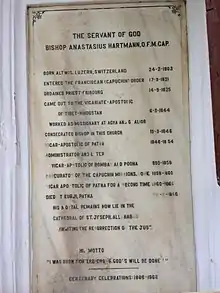 THE SERVANT OF GOD
BISHOP ANASTASIUS HARTMANN, O.F.M.CAP.
BORN ALTWIS, LUZERN, SWITZERLAND 24-2-1803
ENTERED THE FRANCISCAN (CAPUCHIN) ORDER 17-9-1821
ORDAINED PRIEST FRIBOURG
CAME OUT TO THE VICARIATE-APOSTOLIC
OF TIBET-HINDUSTAN
WORKED AS MISSIONARY AT AGRA AND
CONSECRATED BISHOP IN THIS CHURCH
VICAR-APOSTOLIC OF PATNA
ADMINISTRATOR AND
VICAR-APOSTOLIC OF BOMBAY AND POONA
OF THE CAPUCHIN MISSIONS, ROME
VICAR APOSTOLIC OF PATNA FOR A SECOND TIME
DIED PATNA
MORTAL REMAINS NOW LIE IN THE
CATHEDRAL OF ST. JOSEPH, ALLAHABAD
AWAITING THE RESURRECTION OF THE JUST
MOTTO
"I WAS BORN FOR THIS END GOD'S WILL BE DONE"
CENTENARY CELEBRATIONS 1966